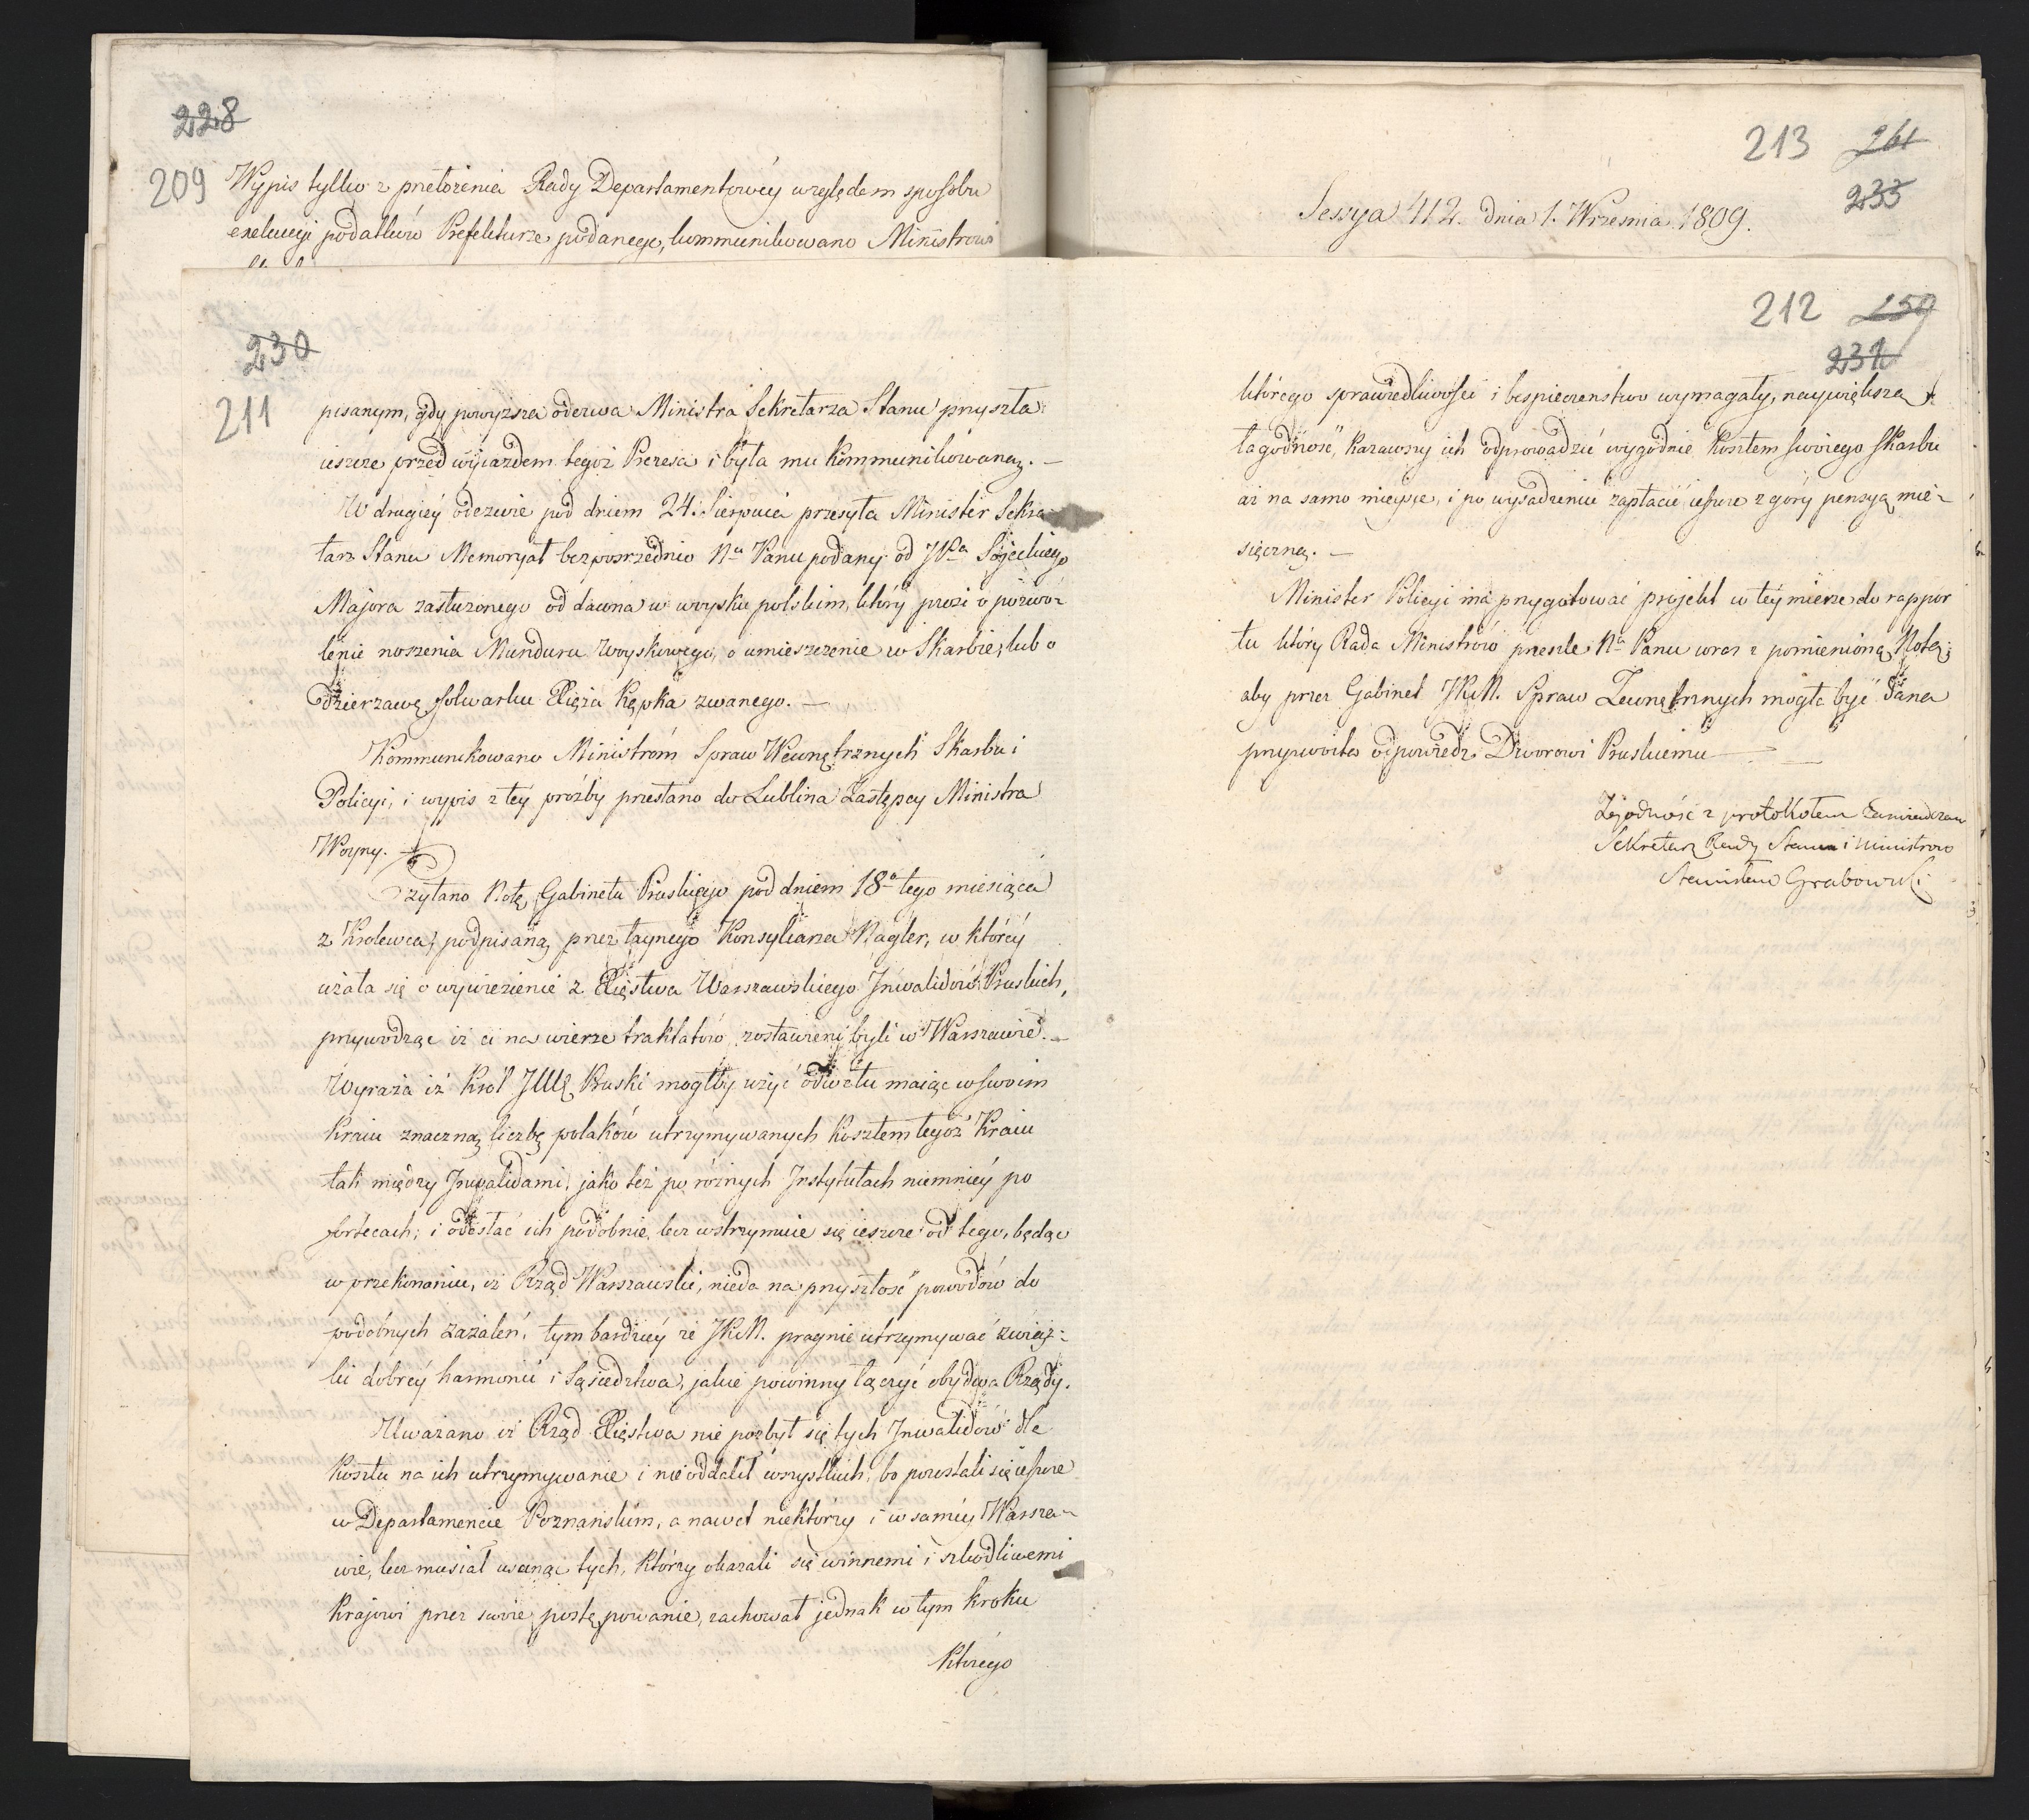 228
209
Wypis tylko z przełożenia Rady Departamentowéy względem sposobu
exekucyi podatków Prefekturze podanego, kommunikowano Ministrowi
213 261
233
Sessya 412. dnia 1. Wrzesnia 1809.
230
211
pisanym, gdy powyższa odezwa Ministra Sekretarza Stanu przyszła
ieszcze przed wyiazdem tegoż Prezesa i była mu kommunikowaną. —
W drugiéy odezwie pod dniem 24. Sierpnia przesyła Minister Sekre-
tarz Stanu Memoryał bezpośrzednio Nu Panu podany od JPa
Majora zasłużonego od dawna w woysku polskim, który prosi o pozwo-
lenie noszenia Munduru woyskowego, o umieszczenie w Skarbie, lub o
dzierzawę folwarku Xięża Kępka zwanego. —
Kommunikowano Ministrom Spraw Wewnętrznych Skarbu i
Policyi, i wypis z téy prożby przesłano do Lublina Zastępcy Ministra
Woyny. —
Czytano Notę Gabinetu Pruskiego pod dniem 18o tego miesiąca
z Krolewca, podpisaną przez taynego Konsyliarza Nagler, w któréy
użala się o wywiezienie z Xięstwa Warszawskiego Inwalidów Pruskich,
przywodząc iż ci na wierze traktatów zostawieni byli w Warszawie. —
Wyraża iż Krol JMć Pruski mogłby użyć odwetu maiąc w swoim
Kraiu znaczną liczbę polaków utrzymywanych kosztem tegoż Kraiu
tak między Inwalidami, jako też po róznych Instytutach niemniéy po
fortecach; i odesłać ich podobnie, lecz wstrzymuie się ieszcze od tego, będąc
w przekonaniu, iż Rząd Warszawski, nieda na przyszłość powodów do
podobnych zażaleń, tym bardziéy że JKM. pragnie utrzymywać związ-
ki dobréy harmonii i sąsiedztwa, jakie powinny łączyć obydwa Rządy.
Uważano iż Rząd Xięstwa nie pozbył się tych Inwalidów dla
kosztu na ich utrzymywanie i nie oddalił wszystkich, bo pozostali się ieszcze
w Departamencie Poznańskim, a nawet niektórzy i w saméy Warsza-
wie, lecz musiał usunąć tych, którzy okazali się winnemi i szkodliwemi
Krajowi przez swoie postępowanie, zachował jednak w tym kroku
którego
212 259
232
którego sprawiedliwość i bespieczeństwo wymagały, naywiększą
łagodność, kazawszy ich odprowadzić wygodnie kosztem swoiego Skarbu
aż na samo mieysce, i po wysadzeniu zapłacić ieszcze z góry pensyą mie-
sięczną. —
Minister Policyi ma przygotować projekt w téy mierze do rappor
tu który Rada Ministrów prześle Nu Panu wraz z pomienioną Notą;
aby przez Gabinet JKM. Spraw Zewnętrznych mogła być dana
przyzwoita odpowiedz Dworowi Pruskiemu —
Zgodność z protokołem zaświadczam
Sekretarz Rady Stanu i Ministrow
Stanisław Grabowski